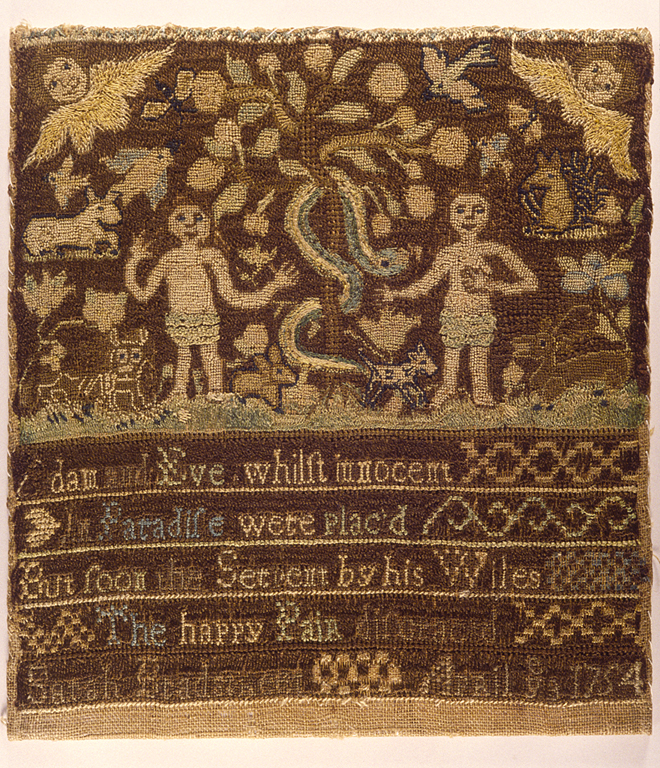 Adam and Eve whilſt innocent
In Paradiſe were plac'd
But ſoon the Serpent by his Wiles
The happy Pair diſgrac'd
Sarah April 1754